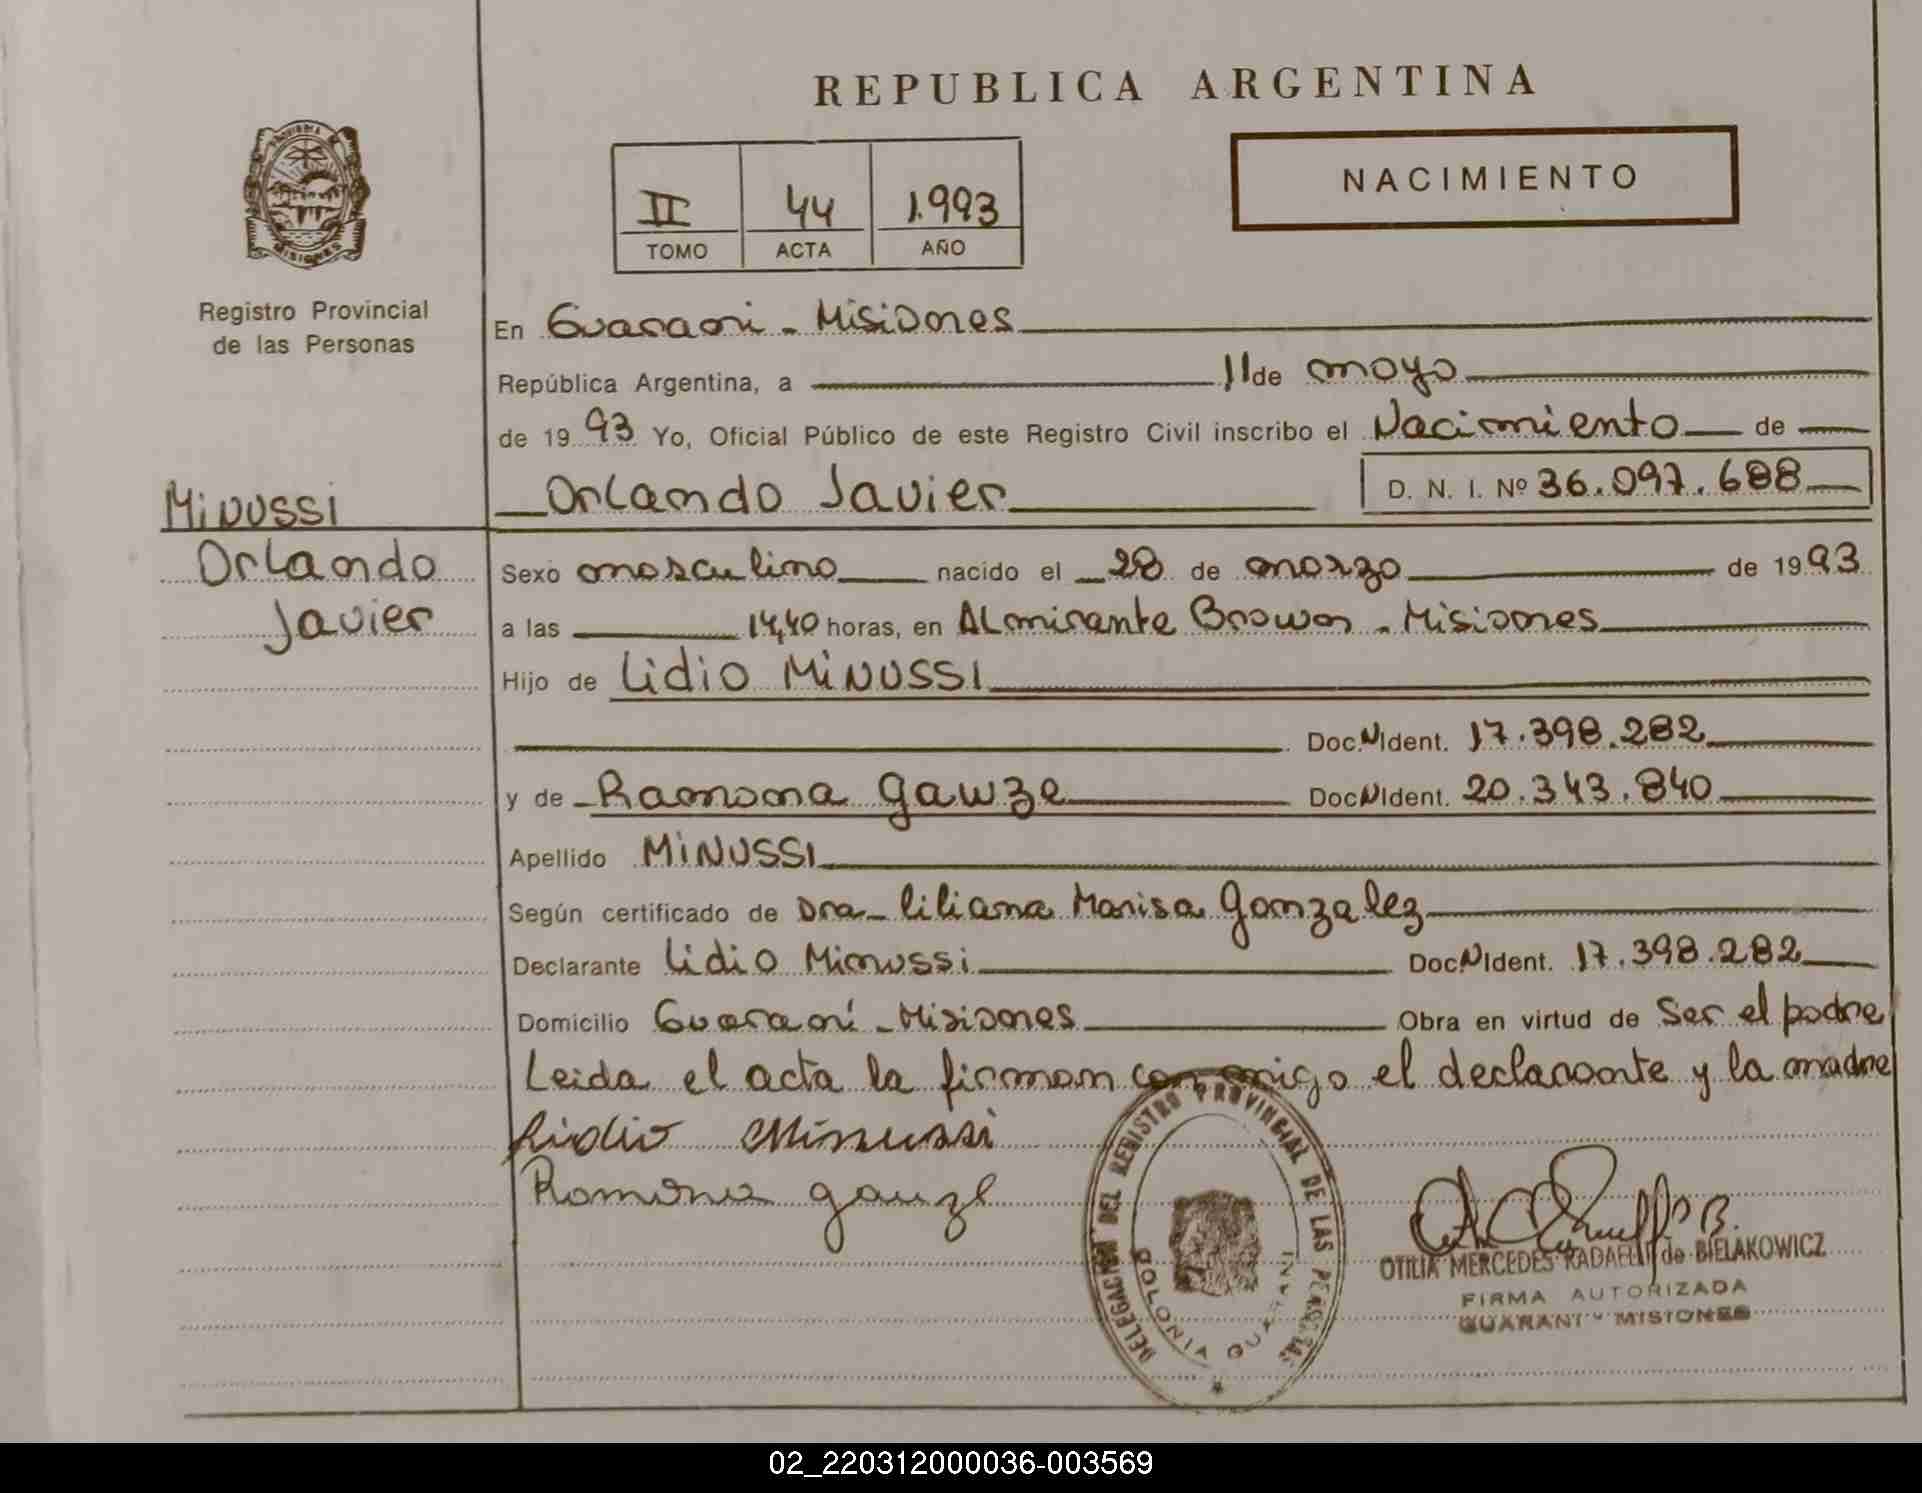 REPUBLICA ARGENTINA
PROVINCIA DE
MISIONES
Registro Provincial
de las Personas
II 44 1.993
TOMO ACTA AÑO
NACIMIENTO
En Guarani - Misiones
República Argentina, a 11 de mayo
de 1993 Yo, Oficial Público de este Registro Civil inscribo el Nacimiento de
Orlando Javier D. N. I. Nº 36.097.688
MINUSSI
Orlando
Javier
Sexo masculino nacido el 28 de marzo de 1993
a las 14,40 horas, en Almirante Brown - Misiones
Hijo de Lidio MINUSSI
Doc. N Ident. 17.398.282
y de Ramona Gawze Doc. N Ident. 20.343.840
Apellido MINUSSI
Según certificado de Dra - Liliana Marisa Gonzalez
Declarante Lidio Minussi Doc. N Ident. 17.398.282
Domicilio Guaraní - Misiones Obra en virtud de Ser el padre
Leida el acta la firman conmigo el declarante y la madre
Lidio Minussi
Ramona Gauze
DELEGACION DEL REGISTRO PROVINCIAL DE LAS PERSONAS
COLONIA GUARANI
OTILIA MERCEDES RADAELLI de BIELAKOWICZ
FIRMA AUTORIZADA
GUARANI - MISIONES
02_220312000036-003569